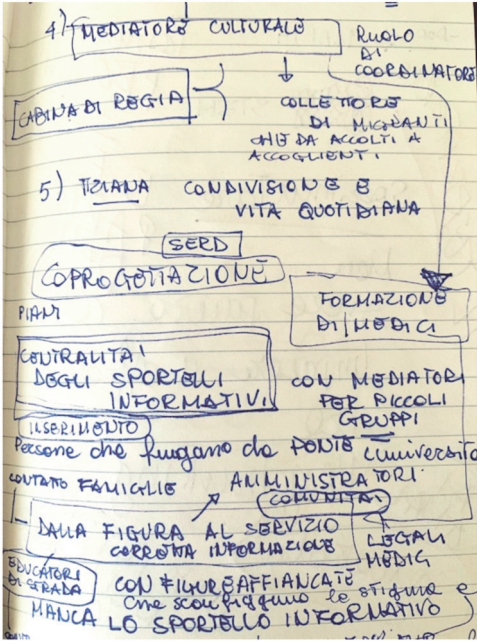 4) MEDIATORE CULTURALE
RUOLO
DI
COORDINATORE
CABINA DI REGIA
COLLETTORE
DI MIGRANTI
CHE DA ACCOLTI A
ACCOGLIENTI
5) TIZIANA CONDIVISIONE E
VITA QUOTIDIANA
SERD
COPROGETTAZIONE
FORMAZIONE
DI MEDICI
PIANI
CENTRALITA'
DEGLI SPORTELLI
INFORMATIVI
CON MEDIATORI
PER PICCOLI
GRUPPI
INSERIMENTO
Persone che fungano da PONTE università
CONTATTO FAMIGLIE
AMMINISTRATORI
COMUNITA'
DALLA FIGURA AL SERVIZIO
CORRETTA INFORMAZIONE
LEGALI
MEDICI
EDUCATORI
DI STRADA
CON FIGURE AFFIANCATE
che sconfiggano lo stigma e
MANCA LO SPORTELLO INFORMATIVO